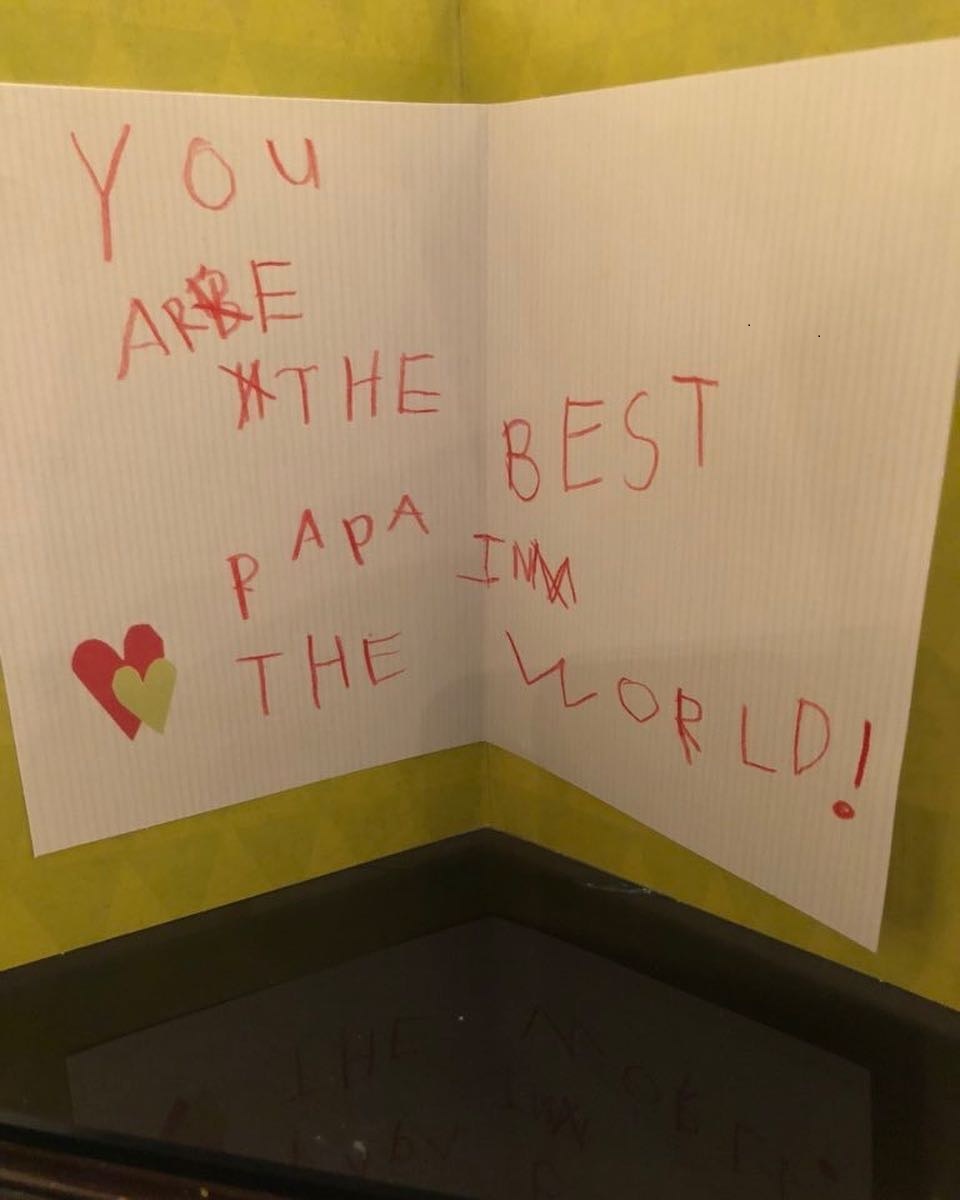 YOU
ARE
THE BEST
PAPA IN
THE WORLD!